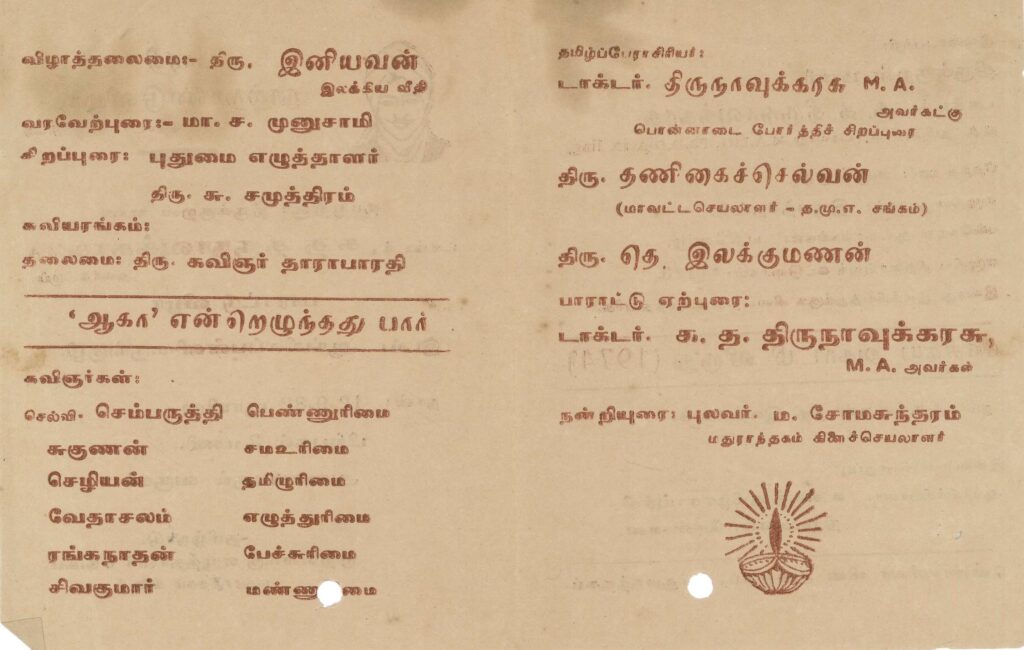 விழாத்தலைமை:- திரு. இனியவன்
இலக்கிய வீதி
வரவேற்புரை:- மா. ச. முனுசாமி
சிறப்புரை: புதுமை எழுத்தாளர்
திரு. சு. சமுத்திரம்
கவியரங்கம்:
தலைமை: திரு. கவிஞர் தாராபாரதி
‘ஆகா’ என்றெழுந்தது பார்
கவிஞர்கள்:
செல்வி. செம்பருத்தி பெண்ணுரிமை
சுகுணன் சமஉரிமை
செழியன் தமிழுரிமை
வேதாசலம் எழுத்துரிமை
ரங்கநாதன் பேச்சுரிமை
சிவகுமார்
தமிழ்ப்பேராசிரியர்:
டாக்டர். திருநாவுக்கரசு M. A.
அவர்கட்கு
பொன்னாடை போர்த்திச் சிறப்புரை
திரு. தணிகைச்செல்வன்
(மாவட்டசெயலாளர் - த.மு.எ. சங்கம்)
திரு. தெ இலக்குமணன்
பாராட்டு ஏற்புரை:
டாக்டர். க. த. திருநாவுக்கரசு,
M. A. அவர்கள்
நன்றியுரை: புலவர். ம. சோமசுந்தரம்
மதுராந்தகம் கிளைச்செயலாளர்